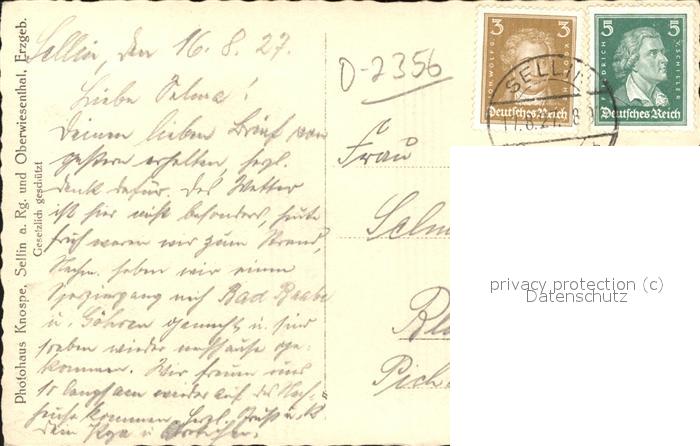 Sellin, den 16.8.27.
Liebe Selma!
Deinen lieben Brief von
gestern erhalten, herzl.
Dank dafür. Das Wetter
ist hier nicht besonders, heute
früh waren wir zum Strand,
Nachm. haben wir einen
Spaziergang nach Bad Baabe
u. Göhren gemacht u. sind
soeben wieder nachhause ge-
kommen. Wir freuen uns
so langsam wieder auf das Nach-
hause kommen. Herzl. Grüße u. K.
Dein
D-2356
Frau
Selm
Bl
Pich
3 3
JOH. WOLFG. V. GOETHE
Deutsches Reich
5 5
FRIEDRICH V. SCHILLER
Deutsches Reich
SELLIN
17.8.27. 8
Photohaus Knospe, Sellin a. Rg. und Oberwiesenthal, Erzgeb.
Gesetzlich geschützt
privacy protection (c)
Datenschutz